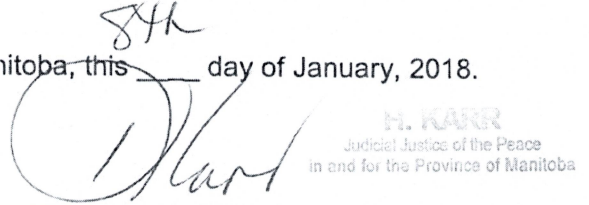 8th
nitoba, this ____ day of January, 2018.
H. KARR
Judicial Justice of the Peace
in and for the Province of Manitoba